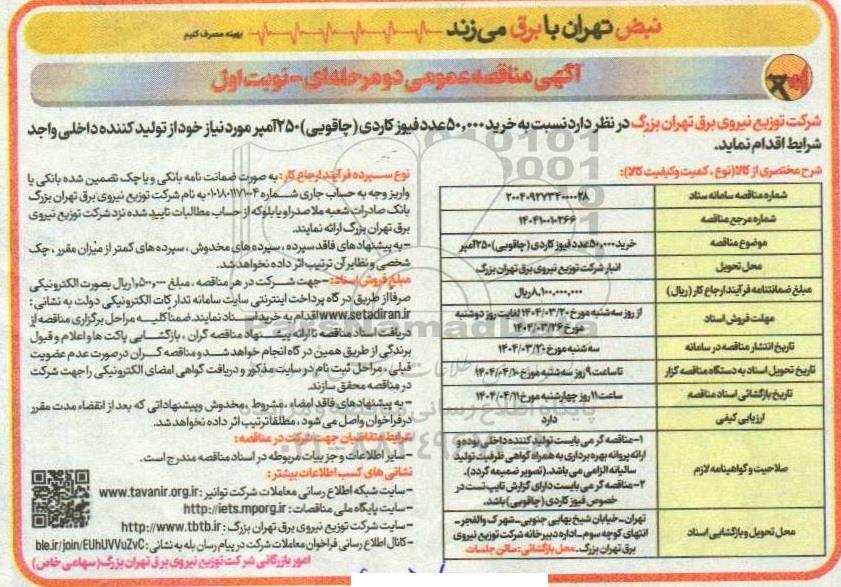 نبض تهران با برق می‌زند
بهینه مصرف کنیم
آگهی مناقصه عمومی دو مرحله‌ای - نوبت اول
شرکت توزیع نیروی برق تهران بزرگ در نظر دارد نسبت به خرید ۵۰,۰۰۰ عدد فیوز کاردی (چاقویی) ۲۵۰ آمپر مورد نیاز خود از تولید کننده داخلی واجد
شرایط اقدام نماید.
شرح مختصری از کالا (نوع، کمیت و کیفیت کالا):
شماره مناقصه سامانه ستاد ۲۰۰۴۰۹۲۷۳۴۰۰۰۰۲۸
شماره مرجع مناقصه ۱۴۰۴۱۰۰۱۰۳۶۶
موضوع مناقصه خرید ۵۰,۰۰۰ عدد فیوز کاردی (چاقویی) ۲۵۰ آمپر
محل تحویل انبار شرکت توزیع نیروی برق تهران بزرگ
مبلغ ضمانتنامه فرآیند ارجاع کار (ریال) ۸,۱۰۰,۰۰۰,۰۰۰ ریال
مهلت فروش اسناد از روز سه شنبه مورخ ۱۴۰۴/۰۳/۲۰ لغایت روز دوشنبه
مورخ ۱۴۰۴/۰۳/۲۶
تاریخ انتشار مناقصه در سامانه سه شنبه مورخ ۱۴۰۴/۰۳/۲۰
تاریخ تحویل اسناد به دستگاه مناقصه گزار تا ساعت ۹ روز سه شنبه مورخ ۱۴۰۴/۰۴/۱۰
تاریخ بازگشائی اسناد مناقصه ساعت ۱۱ روز چهارشنبه مورخ ۱۴۰۴/۰۴/۱۱
ارزیابی کیفی دارد
صلاحیت و گواهینامه لازم
۱- مناقصه گر می بایست تولید کننده داخلی بوده و
ارائه پروانه بهره برداری به همراه گواهی ظرفیت تولید
سالیانه الزامی می باشد. (تصویر ضمیمه گردد).
۲- مناقصه گر می بایست دارای گزارش تایپ تست در
خصوص فیوز کاردی (چاقویی) باشد.
محل تحویل و بازگشایی اسناد
تهران - خیابان شیخ بهایی جنوبی - شهرک والفجر -
انتهای کوچه سوم - اداره دبیرخانه شرکت توزیع نیروی
برق تهران بزرگ. محل بازگشائی: سالن جلسات
نوع سپرده فرآیند ارجاع کار: به صورت ضمانت نامه بانکی و یا چک تضمین شده بانکی یا
واریز وجه به حساب جاری شماره ۰۱۰۱۸۰۱۱۷۱۰۰۴ به نام شرکت توزیع نیروی برق تهران بزرگ
بانک صادرات شعبه ملاصدرا و یا بلوکه از حساب مطالبات تایید شده نزد شرکت توزیع نیروی
برق تهران بزرگ ارائه نمایند.
- به پیشنهادهای فاقد سپرده، سپرده های مخدوش، سپرده های کمتر از میزان مقرر، چک
شخصی و نظایر آن ترتیب اثر داده نخواهد شد.
مبلغ فروش اسناد: - جهت شرکت در هر مناقصه، مبلغ ۱,۵۰۰,۰۰۰ ریال بصورت الکترونیکی
صرفا از طریق درگاه پرداخت اینترنتی سایت سامانه تدارکات الکترونیکی دولت به نشانی:
www.setadiran.ir اقدام به خرید اسناد نمایند. ضمنا کلیه مراحل برگزاری مناقصه از
دریافت اسناد مناقصه تا ارائه پیشنهاد مناقصه گران، بازگشایی پاکت ها و اعلام و قبول
برندگی از طریق همین درگاه انجام خواهد شد و مناقصه گران در صورت عدم عضویت
قبلی، مراحل ثبت نام در سایت مذکور و دریافت گواهی امضای الکترونیکی را جهت شرکت
در مناقصه محقق سازند.
- به پیشنهادهای فاقد امضاء، مشروط، مخدوش و پیشنهاداتی که بعد از انقضاء مدت مقرر
در فراخوان واصل می شود، مطلقا ترتیب اثر داده نخواهد شد.
شرایط متقاضیان جهت شرکت در مناقصه:
- سایر اطلاعات و جزییات مربوطه در اسناد مناقصه مندرج است.
نشانی های کسب اطلاعات بیشتر:
- سایت شبکه اطلاع رسانی معاملات شرکت توانیر: www.tavanir.org.ir
- سایت پایگاه ملی مناقصات: http://iets.mporg.ir
- سایت شرکت توزیع نیروی برق تهران بزرگ: http://www.tbtb.ir
- کانال اطلاع رسانی فراخوان معاملات شرکت در پیام رسان بله به نشانی: ble.ir/join/EUhUVVuZvC
امور بازرگانی شرکت توزیع نیروی برق تهران بزرگ (سهامی خاص)